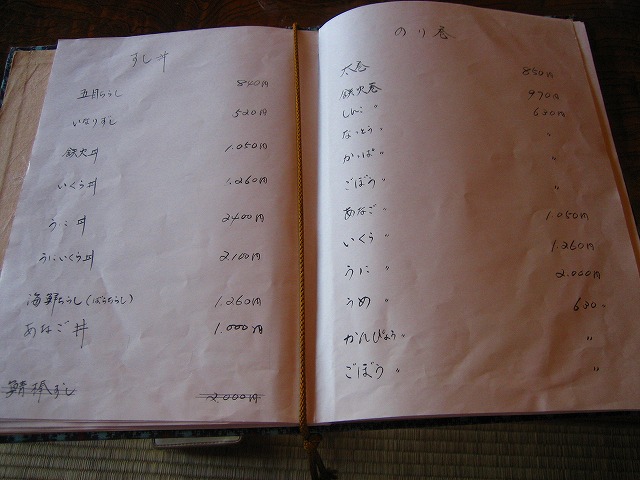 すし丼
五目ちらし 840円
いなりずし 520円
鉄火丼 1.050円
いくら丼 1.260円
うに丼 2400円
うにいくら丼 2.100円
海鮮ちらし(ばらちらし) 1.260円
あなご丼 1.000円
鯖棒ずし 2.000円
のり巻
太巻 850円
鉄火巻 970円
しんこ 〃 630円
なっとう 〃 〃
かっぱ 〃 〃
ごぼう 〃 〃
あなご 〃 1.050円
いくら 〃 1.260円
うに 〃 2.000円
うめ 〃 630 〃
かんぴょう 〃 〃
ごぼう 〃 〃